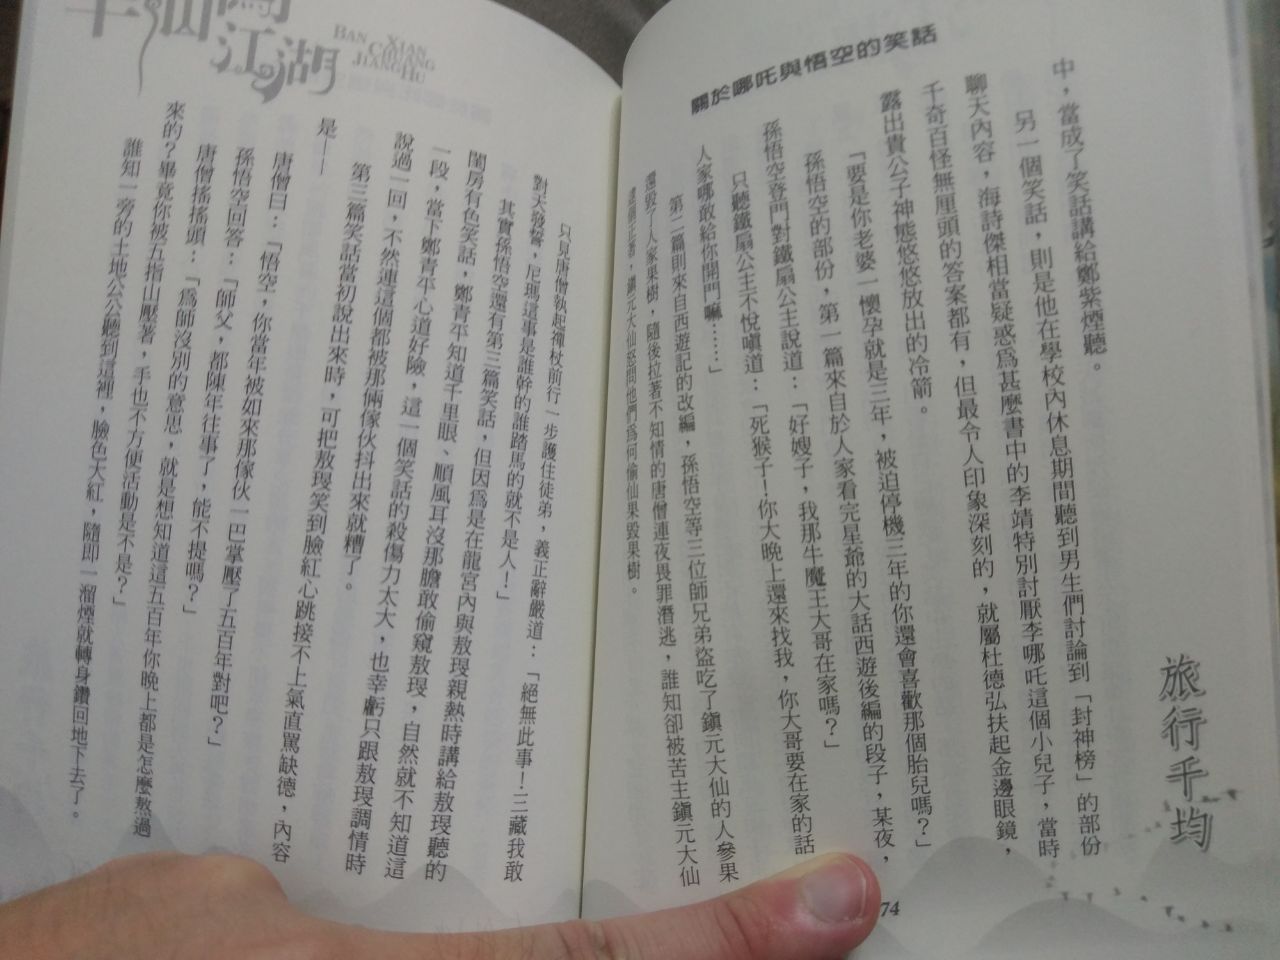 旅行千均
關於哪吒與悟空的笑話
中，當成了笑話講給鄭紫煙聽。
另一個笑話，則是他在學校內休息期間聽到男生們討論到「封神榜」的部份
聊天內容，海詩傑相當疑惑為甚麼書中的李靖特別討厭李哪吒這個小兒子，當時
千奇百怪無厘頭的答案都有，但最令人印象深刻的，就屬杜德弘扶起金邊眼鏡，
露出貴公子神態悠悠放出的冷箭。
「要是你老婆一懷孕就是三年，被迫停機三年的你還會喜歡那個胎兒嗎？」
孫悟空的部份，第一篇來自於人家看完星爺的大話西遊後編的段子，某夜，
孫悟空登門對鐵扇公主說道：「好嫂子，我那牛魔王大哥在家嗎？」
只聽鐵扇公主不悅嗔道：「死猴子！你大晚上還來找我，你大哥要在家的話
人家哪敢給你開門嘛……」
第二篇則來自西遊記的改編，孫悟空等三位師兄弟盜吃了鎮元大仙的人參果
還毀了人家果樹，隨後拉著不知情的唐僧連夜畏罪潛逃，誰知卻被苦主鎮元大仙
逮個正著，鎮元大仙怒問他們為何偷仙果毀果樹。
74
半仙闖江湖
BAN XIAN
CHUANG
JIANG HU
只見唐僧執起禪杖前行一步護住徒弟，義正辭嚴道：「絕無此事！三藏我敢
對天發誓，尼瑪這事是誰幹的誰踏馬的就不是人！」
其實孫悟空還有第三篇笑話，但因為是在龍宮內與敖玥親熱時講給敖玥聽的
閨房有色笑話，鄭青平知道千里眼、順風耳沒那膽敢偷窺敖玥，自然就不知道這
一段，當下鄭青平心道好險，這一個笑話的殺傷力太大，也幸虧只跟敖玥調情時
說過一回，不然連這個都被那倆傢伙抖出來就糟了。
第三篇笑話當初說出來時，可把敖玥笑到臉紅心跳接不上氣直罵缺德，內容
是——
唐僧曰：「悟空，你當年被如來那傢伙一巴掌壓了五百年對吧？」
孫悟空回答：「師父，都陳年往事了，能不提嗎？」
唐僧搖搖頭：「為師沒別的意思，就是想知道這五百年你晚上都是怎麼熬過
來的？畢竟你被五指山壓著，手也不方便活動是不是？」
誰知一旁的土地公公聽到這裡，臉色大紅，隨即一溜煙就轉身鑽回地下去了。